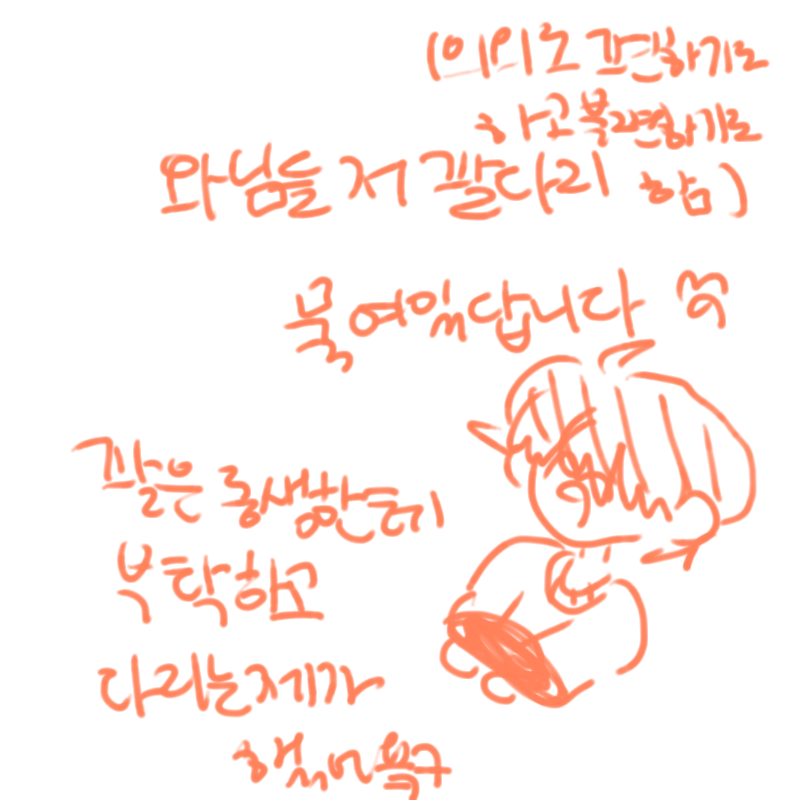 와 님들 저 팔다리
묶여있답니다
(의외로 편하기도
하고 불편하기도
함)
팔은 동생한테
부탁하고
다리는 제가
했어욕구